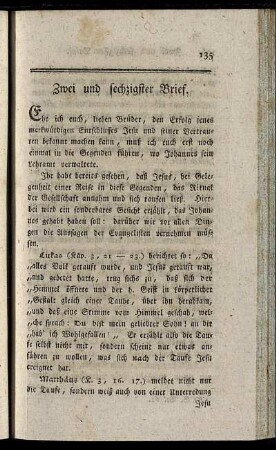 135
Zwei und sechzigster Brief.
Ehe ich euch, lieben Brüder, den Erfolg jenes
merkwürdigen Entschlusses Jesu und seiner Vertrau-
ten bekannt machen kann, muß ich euch erst noch
einmal in die Gegenden führen, wo Johannes sein
Lehramt verwaltete.
Ihr habt bereits gesehen, daß Jesus, bei Gele-
genheit einer Reise in diese Gegenden, das Ritual
der Gesellschaft annahm und sich taufen ließ. Hier-
bei wird ein sonderbares Gesicht erzählt, das Johan-
nes gehabt haben soll: darüber wir vor allen Din-
gen die Aussagen der Evangelisten vernehmen müs-
sen.
Lukas (Kap. 3, 21 — 23.) berichtet so: „Da
„alles Volk getauft wurde, und Jesus getauft war,
„und gebetet hatte, trug sichs zu, daß sich der
„Himmel öffnete und der h. Geist in körperlicher
„Gestalt gleich einer Taube, über ihn herabkam,
„und daß eine Stimme vom Himmel geschah, wel-
„che sprach: Du bist mein geliebter Sohn; an dir
„hab' ich Wohlgefallen!“ Er erzählt also die Tau-
fe selbst nicht mit, sondern scheint nur etwas an-
führen zu wollen, was sich nach der Taufe Jesu
ereignet hat.
Matthäus (K. 3, 16. 17.) meldet nicht nur
die Taufe, sondern weiß auch von einer Unterredung
Jesu